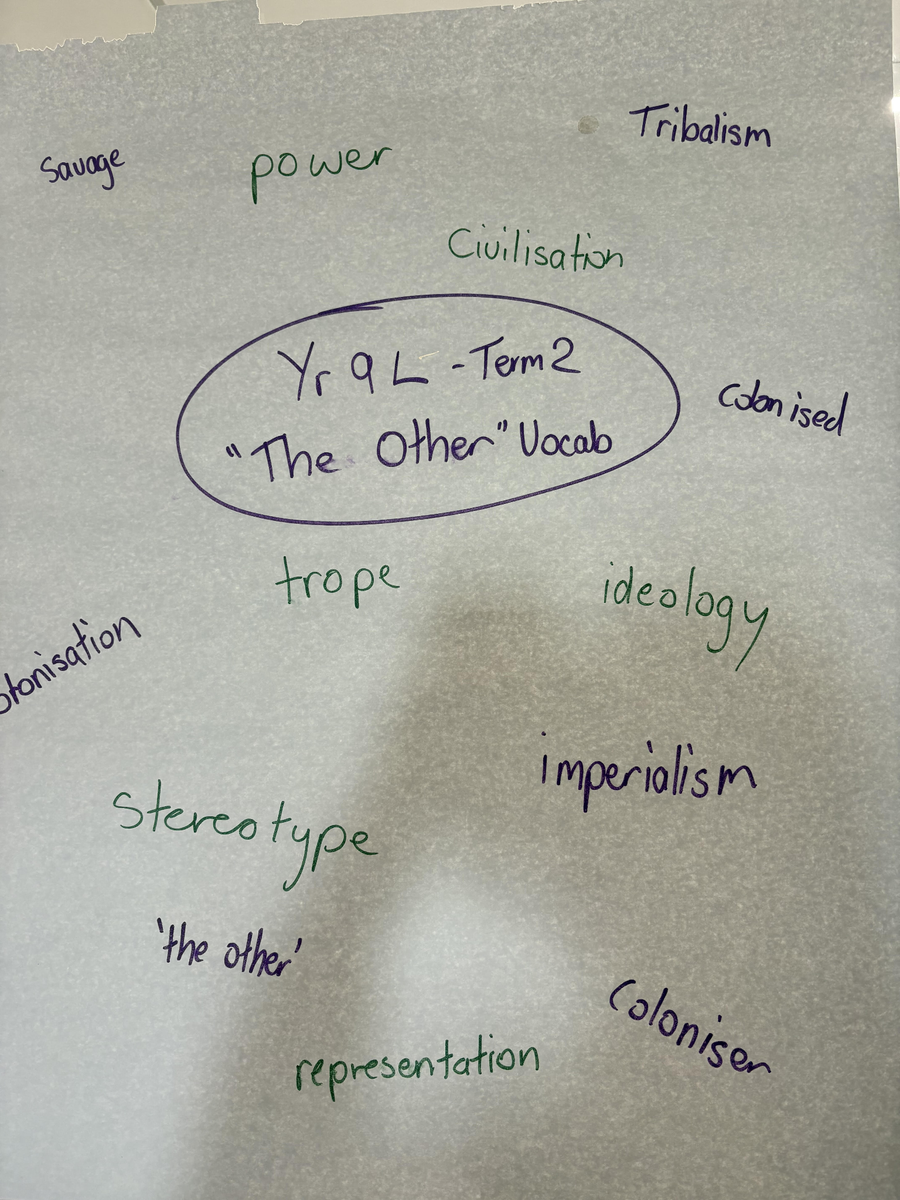 Tribalism
Savage
power
Civilisation
Yr 9 L - Term 2
"The Other" Vocab
Colonised
trope
ideology
olonisation
imperialism
Stereotype
'the other'
Coloniser
representation